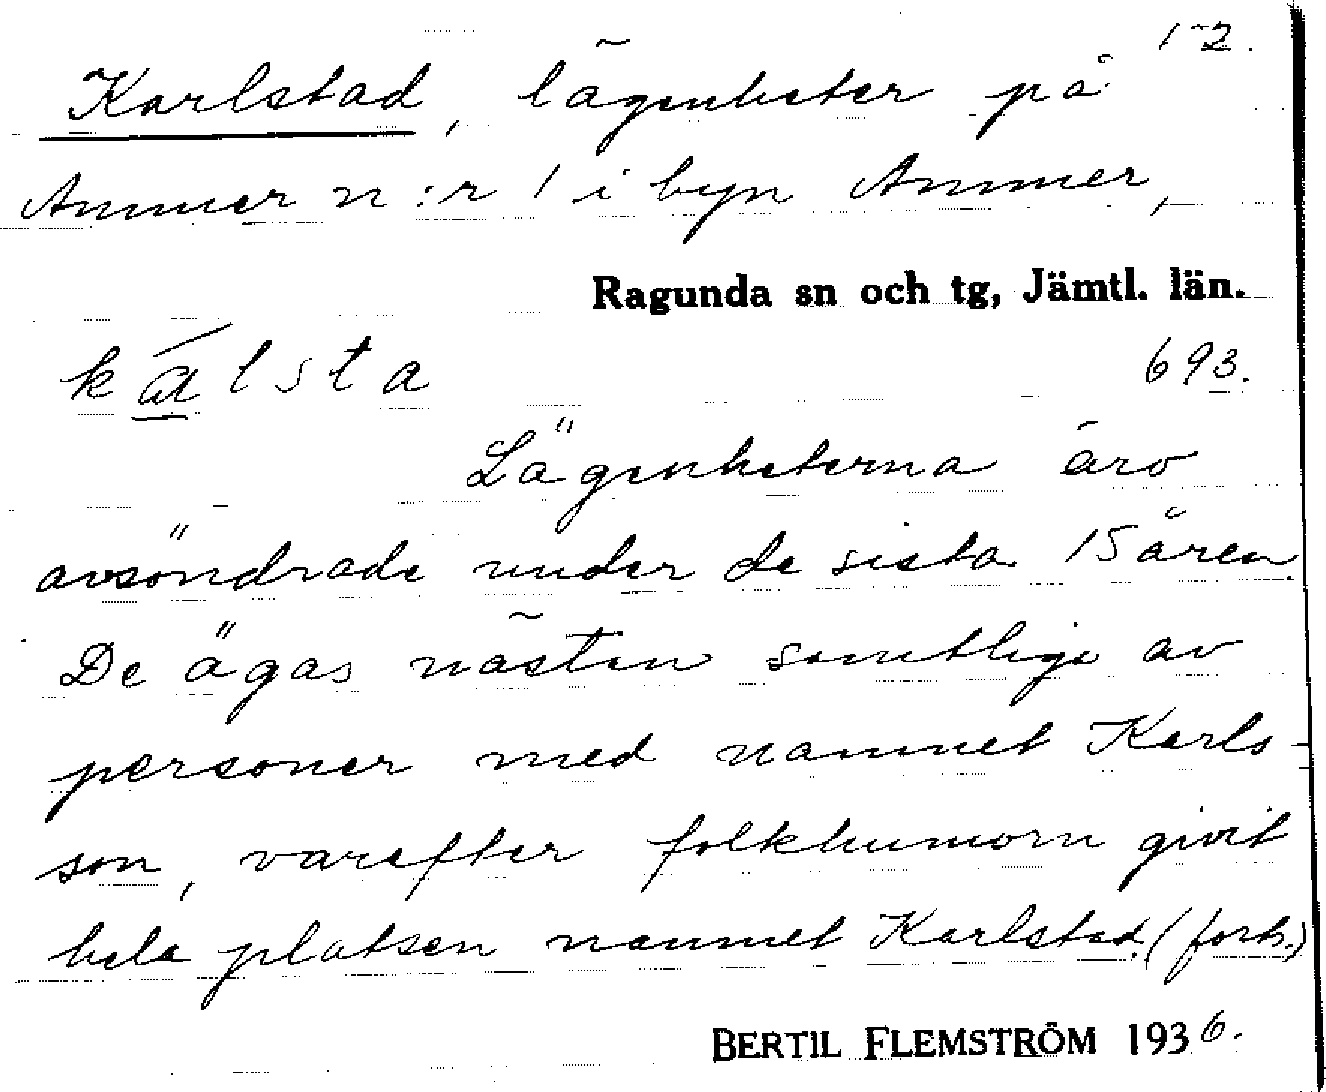 1-2.
Karlstad, lägenheter på
Ammer n:r 1 i byn Ammer,
Ragunda sn och tg, Jämtl. län.
kálsta 693.
Lägenheterna äro
avsöndrade under de sista 15 åren.
De ägas nästan samtliga av
personer med namnet Karls-
son, varefter folkhumorn givit
hela platsen namnet Karlstad. (forts.)
BERTIL FLEMSTRÖM 1936.